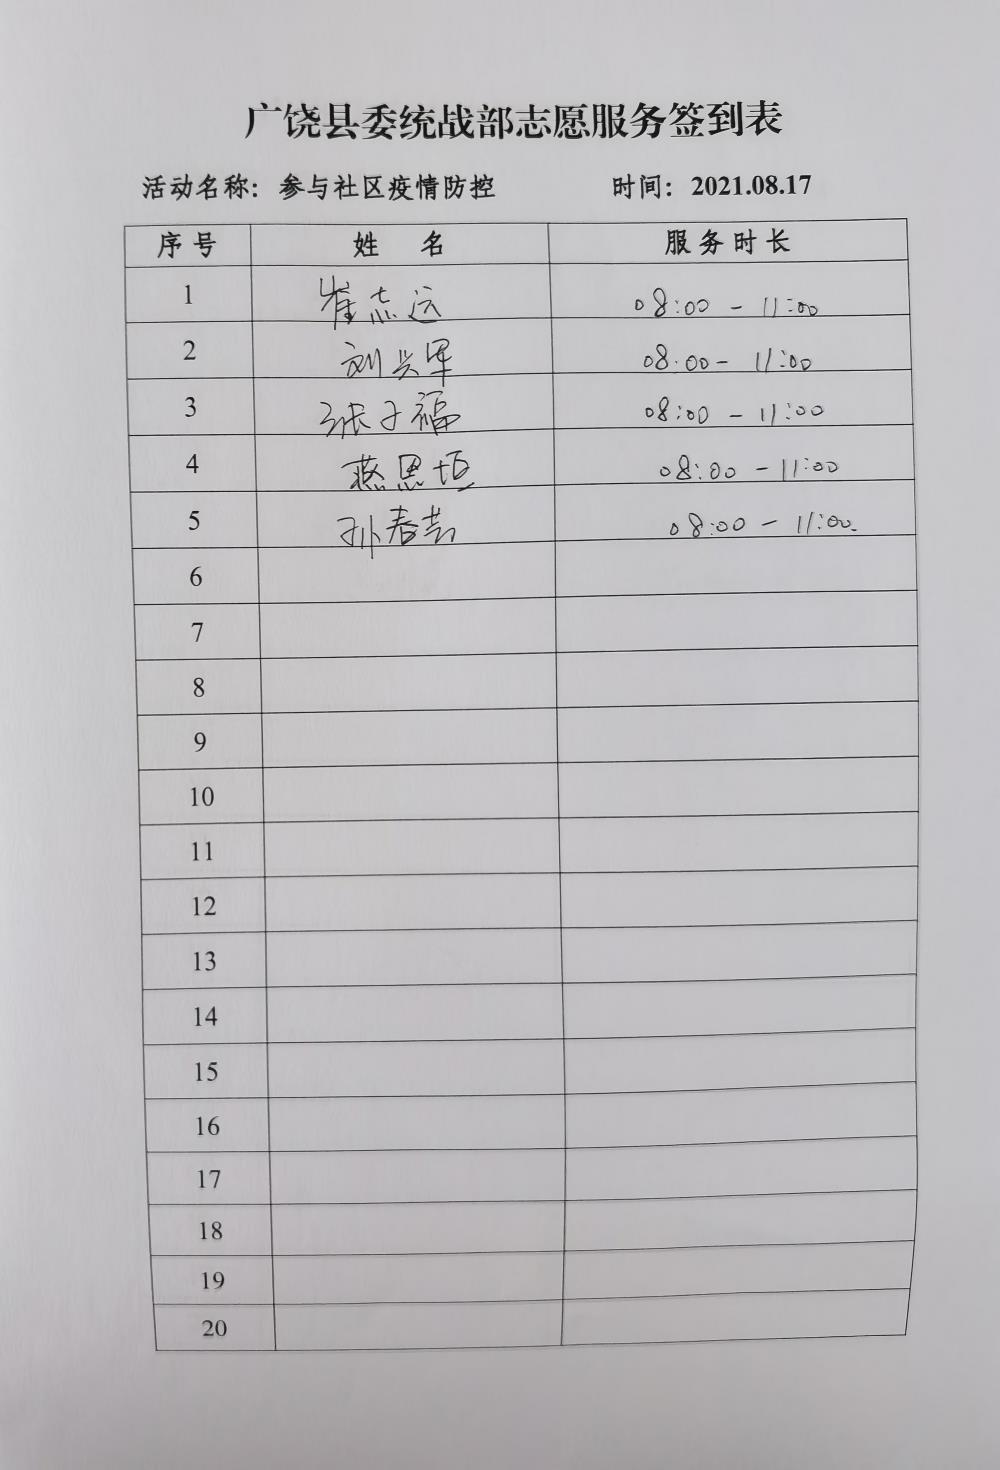 广饶县委统战部志愿服务签到表
活动名称：参与社区疫情防控 时间：2021.08.17
序号 姓 名 服务时长
1 崔志远 08:00 - 11:00
2 刘兴军 08:00 - 11:00
3 张子福 08:00 - 11:00
4 燕恩垣 08:00 - 11:00
5 孙春芸 08:00 - 11:00
6
7
8
9
10
11
12
13
14
15
16
17
18
19
20